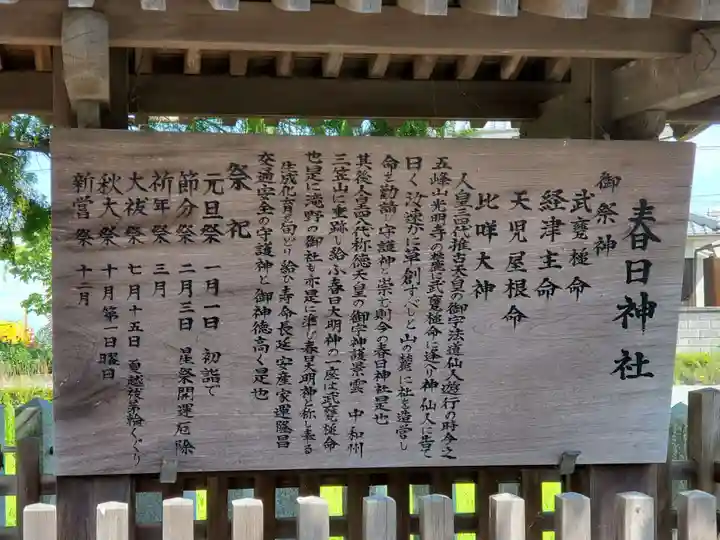 春日神社
御祭神
武甕槌命
経津主命
天児屋根命
比咩大神
人皇三四代推古天皇の御宇法道仙人遊行の時今之
五峰山光明寺の麓に武甕槌命に逢り神仙人に告て
曰く汝速かに草創すべしと山の麓に社を造営し
命を勧請し守護神と崇む則今の春日神社是也
其後人皇四八代称徳天皇の御宇神護景雲 中和州
三笠山に垂跡し給ふ春日大明神の一座は武甕槌命
也是に滝野の御社も亦是に準へ春日大明神と称し奉る
生成化育を旬どり給ひ寿命長延安産家運隆昌
交通安全の守護神と御神徳高く是也
祭祀
元旦祭 一月一日 初詣で
節分祭 二月三日 星祭開運厄除
祈年祭 三月
大祓祭 七月十五日 夏越祓茅輪くゞり
秋大祭 十月第一日曜日
新嘗祭 十二月